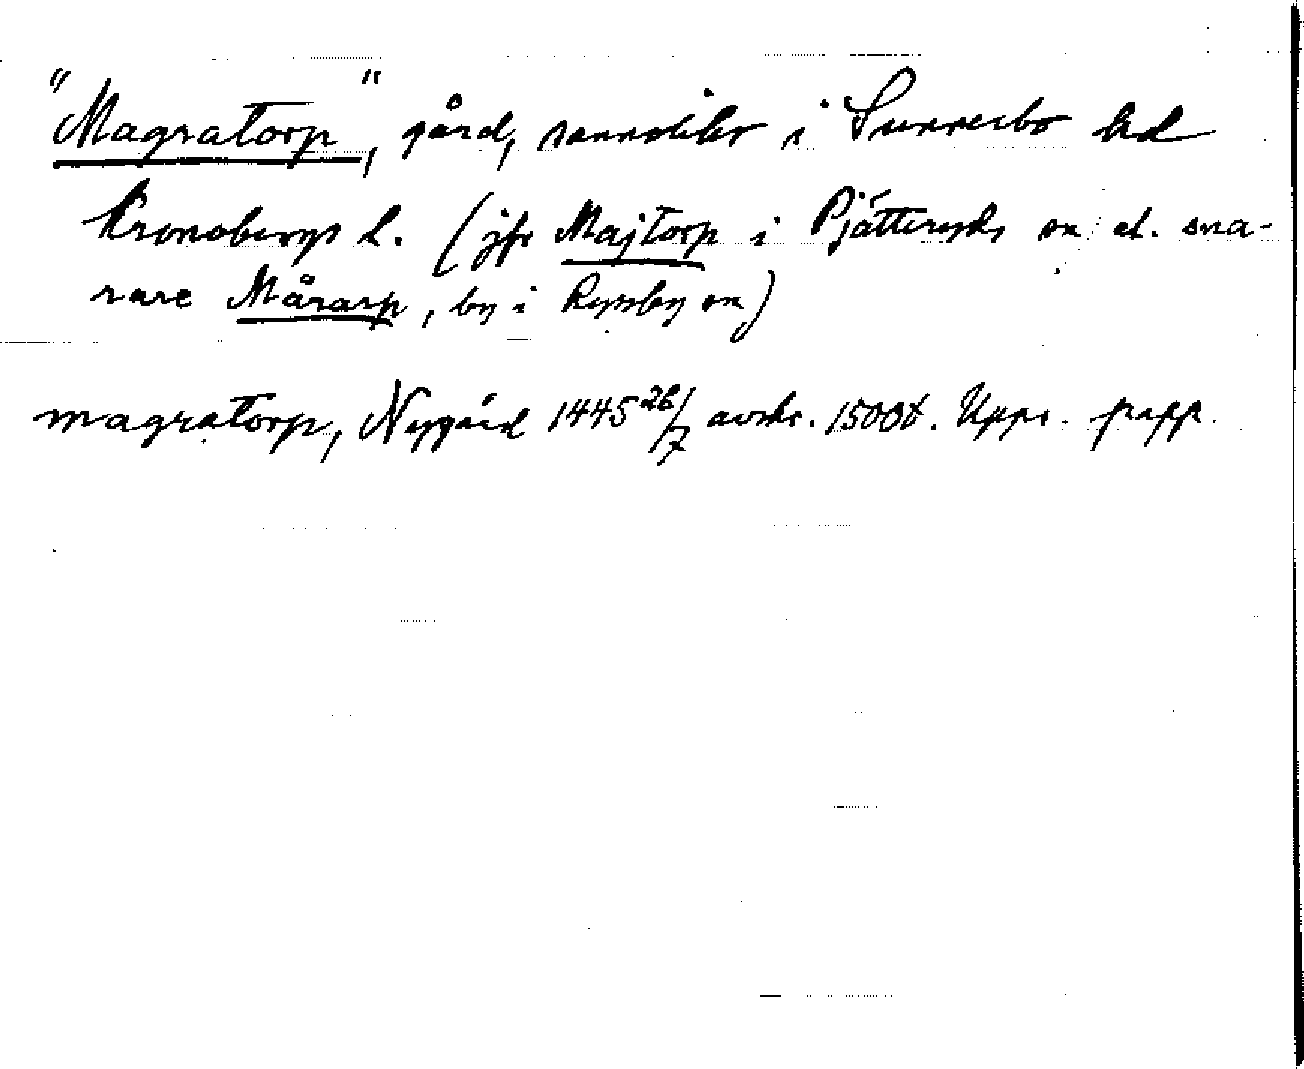 "Magratorp", gård, sannolikt i Sunnerbo hd
Kronobergs l. (jfr Majtorp i Pjätteryds sn el. sna-
rare Mårarp, by i Ryssby sn)
magratorp, Nygård 1445 26/7 avskr. 1500t. Upps. papp.